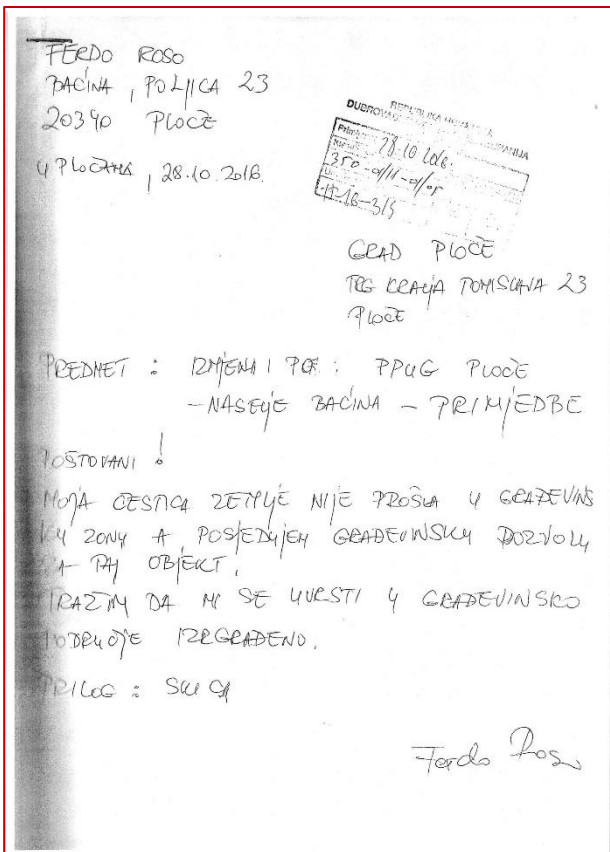 FERDO ROSO
BAĆINA, POLJICA 23
20340 PLOČE
U PLOČAMA, 28.10.2016.
REPUBLIKA HRVATSKA
28.10.2016.
350-01/15-01/05
GRAD PLOČE
TRG KRALJA TOMISLAVA 23
PLOČE
PREDMET : IZMJENA I PPUG PLOČE
- NASELJE BAĆINA - PRIMJEDBE
POŠTOVANI !
MOJA ČESTICA ZEMLJE NIJE PROŠLA U GRAĐEVINS
KU ZONU A POSJEDUJEM GRAĐEVINSKU DOZVOLU
ZA TAJ OBJEKT.
TRAŽIM DA MI SE UVRSTI U GRAĐEVINSKO
PODRUČJE IZGRAĐENO.
PRILOG : SKICA
Ferdo Roso